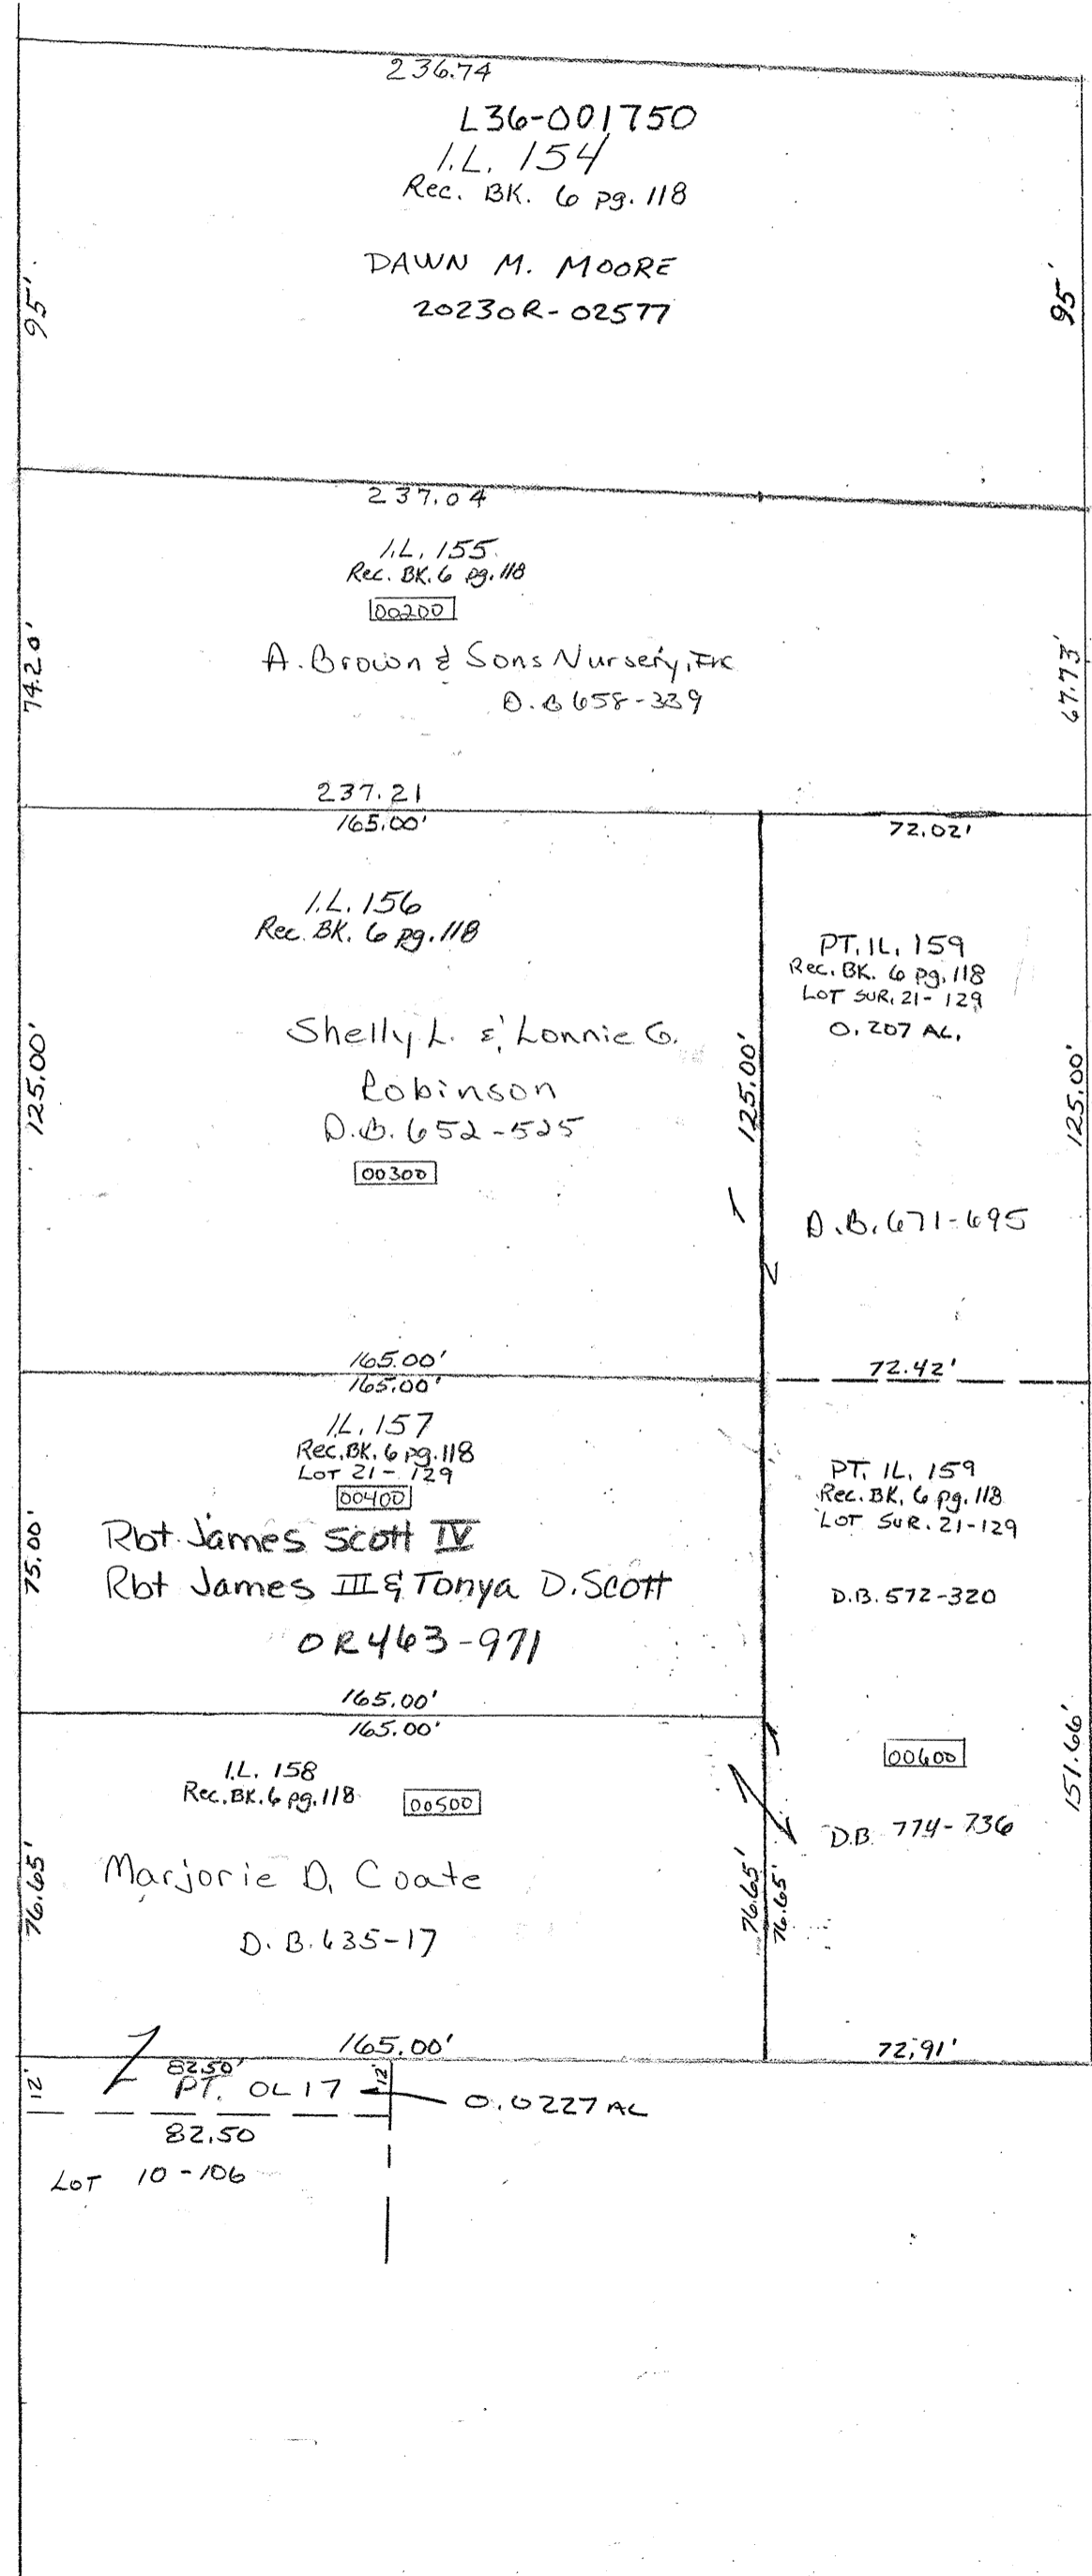 236.74
L36-001750
I.L. 154
Rec. BK. 6 pg. 118
DAWN M. MOORE
20230R-02577
95'
95'
237.04
I.L. 155
Rec. BK. 6 pg. 118
00200
A. Brown & Sons Nursery, Inc
D.B 658-339
74.20'
67.73'
237.21
165.00'
72.02'
I.L. 156
Rec. BK. 6 pg. 118
Shelly L. & Lonnie G.
Robinson
D.B. 652-525
00300
125.00'
125.00'
PT. IL. 159
Rec. BK. 6 pg. 118
LOT SUR. 21-129
0.207 AC.
D.B. 671-695
125.00'
165.00'
72.42'
165.00'
IL. 157
Rec. BK. 6 pg. 118
LOT 21-129
00400
Rbt James Scott IV
Rbt James III & Tonya D. Scott
OR 463-971
75.00'
165.00'
PT. IL. 159
Rec. BK. 6 pg. 118
LOT SUR. 21-129
D.B. 572-320
00600
D.B. 774-736
151.66'
165.00'
I.L. 158
Rec. BK. 6 pg. 118
00500
Marjorie D. Coate
D.B. 635-17
76.65'
76.65'
76.65'
165.00'
72.91'
82.50'
12'
PT. OL 17
12'
0.0227 AC
82.50
LOT 10-106